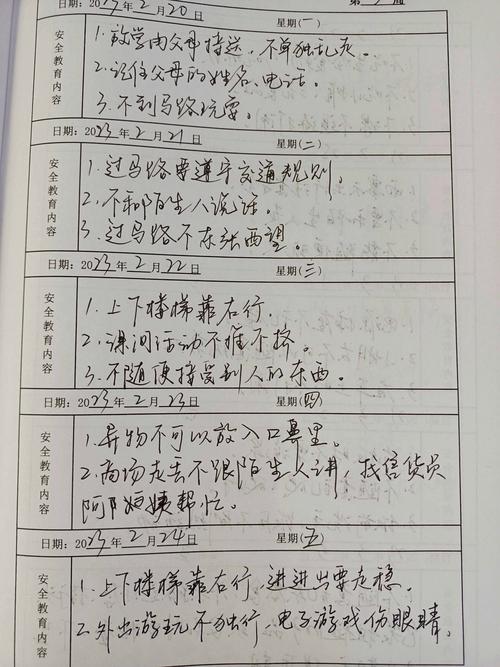 日期: 2023年2月20日 星期(一)
安全教育内容
1.放学由父母接送,不单独乱走。
2.记住父母的姓名、电话。
3.不到马路玩耍。
日期: 2023年2月21日 星期(二)
安全教育内容
1.过马路要遵守交通规则。
2.不和陌生人说话。
3.过马路不东张西望。
日期: 2023年2月22日 星期(三)
安全教育内容
1.上下楼梯靠右行.
2.课间活动不推不挤。
3.不随便接受别人的东西。
日期: 2023年2月23日 星期(四)
安全教育内容
1.异物不可以放入口鼻里。
2.商场走丢不跟陌生人讲,找售货员
阿阝姨姨帮忙。
日期: 2023年2月24日 星期(五)
安全教育内容
1.上下楼梯靠右行,进进出要走稳.
2.外出游玩不独行,电子游戏伤眼睛。